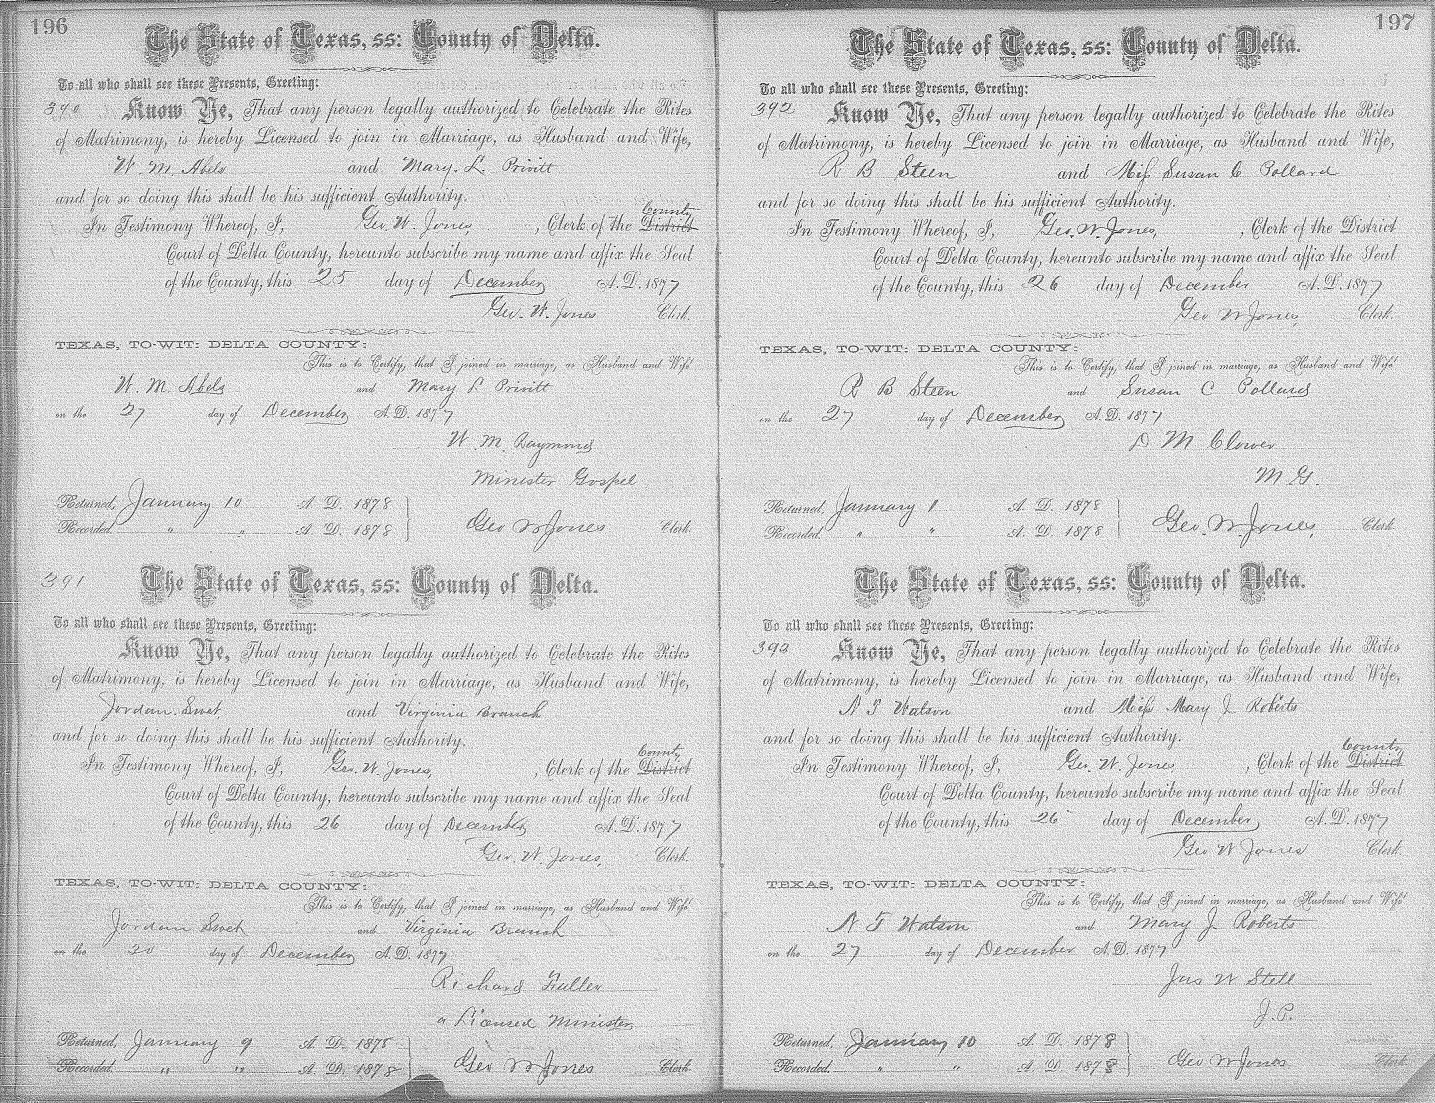 196
The State of Texas, ss: County of Delta.
To all who shall see these Presents, Greeting:
390 Know Ye, That any person legally authorized to Celebrate the Rites
of Matrimony, is hereby Licensed to join in Marriage, as Husband and Wife,
W. M. Abels and Mary. L. Privitt
and for so doing this shall be his sufficient Authority.
County
In Testimony Whereof, I, Geo. W. Jones, , Clerk of the District
Court of Delta County, hereunto subscribe my name and affix the Seal
of the County, this 25 day of December A. D. 1877
Geo. W. Jones Clerk.
TEXAS, TO-WIT: DELTA COUNTY:
This is to Certify, that I joined in marriage, as Husband and Wife
W. M. Abels and Mary L Privitt
on the 27 day of December A. D. 1877
W. M. Raymond
Minister Gospel
Returned, January 10 A. D. 1878
Recorded. " " A. D. 1878 Geo W Jones Clerk
391 The State of Texas, ss: County of Delta.
To all who shall see these Presents, Greeting:
Know Ye, That any person legally authorized to Celebrate the Rites
of Matrimony, is hereby Licensed to join in Marriage, as Husband and Wife,
Jordan. Swet and Virginia Branch
and for so doing this shall be his sufficient Authority.
County
In Testimony Whereof, I, Geo. W. Jones, , Clerk of the District
Court of Delta County, hereunto subscribe my name and affix the Seal
of the County, this 26 day of December A. D. 1877
Geo. W. Jones, Clerk.
TEXAS, TO-WIT: DELTA COUNTY:
This is to Certify, that I joined in marriage, as Husband and Wife
Jordan Swet and Virginia Branch
on the day of December A. D. 1877
Richard Fuller
a Licensed Minister
Returned, January 9 A. D. 1878
Recorded. " " A. D. 1878 Geo W Jones Clerk
197
The State of Texas, ss: County of Delta.
To all who shall see these Presents, Greeting:
392 Know Ye, That any person legally authorized to Celebrate the Rites
of Matrimony, is hereby Licensed to join in Marriage, as Husband and Wife,
R B Steen and Miss Susan C Pollard
and for so doing this shall be his sufficient Authority.
In Testimony Whereof, I, Geo. W. Jones, , Clerk of the District
Court of Delta County, hereunto subscribe my name and affix the Seal
of the County, this 26 day of December A. D. 1877
Geo W Jones, Clerk.
TEXAS, TO-WIT: DELTA COUNTY:
This is to Certify, that I joined in marriage, as Husband and Wife
R B Steen and Susan C Pollard
on the 27 day of December A. D. 1877
D M Clower
M G.
Returned, January 1 A. D. 1878
Recorded. " " A. D. 1878 Geo. W. Jones, Clerk
The State of Texas, ss: County of Delta.
To all who shall see these Presents, Greeting:
393 Know Ye, That any person legally authorized to Celebrate the Rites
of Matrimony, is hereby Licensed to join in Marriage, as Husband and Wife,
N T Watson and Miss Mary J Roberts
and for so doing this shall be his sufficient Authority.
County
In Testimony Whereof, I, Geo. W. Jones , Clerk of the District
Court of Delta County, hereunto subscribe my name and affix the Seal
of the County, this 26 day of December A. D. 1877
Geo W Jones Clerk.
TEXAS, TO-WIT: DELTA COUNTY:
This is to Certify, that I joined in marriage, as Husband and Wife
N T Watson and Mary J Roberts
on the 27 day of December A. D. 1877
Jas W Stell
J. P.
Returned, January 10 A. D. 1878
Recorded. " " A. D. 1878 Geo W Jones Clerk